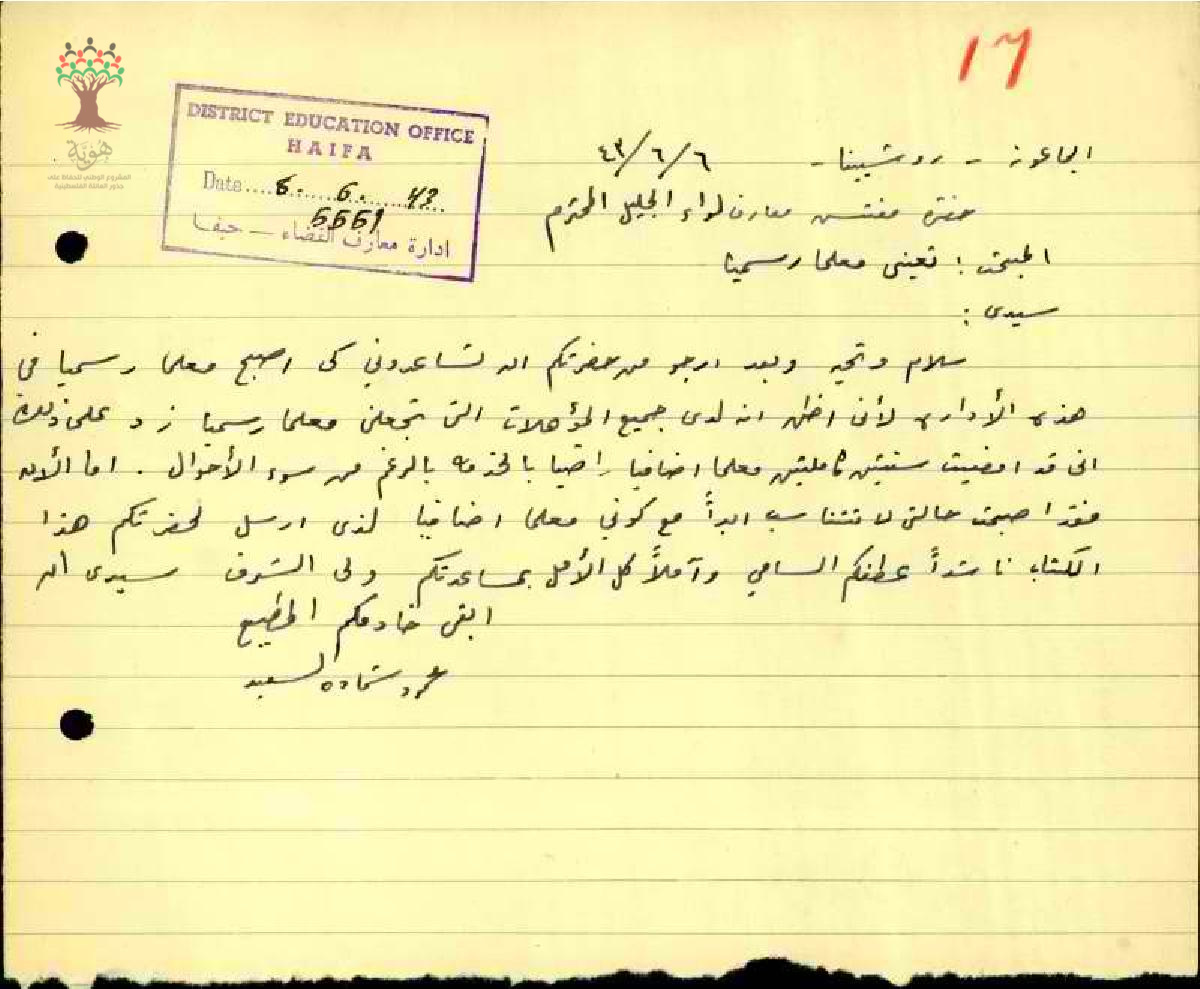 17
هوية
المشروع الوطني للحفاظ على
جذور العائلة الفلسطينية
DISTRICT EDUCATION OFFICE
HAIFA
Date.... 6. 6. 43
5551
ادارة معارف القضاء — حيفا
الجاعونة - روشبينا - ٤٣/٦/٦
حضرة مفتش معارف لواء الجليل المحترم
المبحث : تعييني معلما رسميا
سيدي :
سلام وتحية وبعد ارجو من حضرتكم ان تساعدوني كي اصبح معلما رسميا في
هذه الأدارة لأني اظن ان لدى جميع المؤهلات التي تجعلني معلما رسميا زد على ذلك
اني قد امضيت سنتين كاملتين معلما اضافيا راضيا بالخدمة بالرغم من سوء الأحوال . اما الأن
فقد اصبحت حالتي لا تتناسب ابداً مع كوني معلما اضافيا لذى ارسل لحضرتكم هذا
الكتاب ناشداً عطفكم السامي وآملاً كل الأمل بمساعدتكم ولى الشرف سيدى ان
ابقى خادمكم المطيع
شحاده السعيد